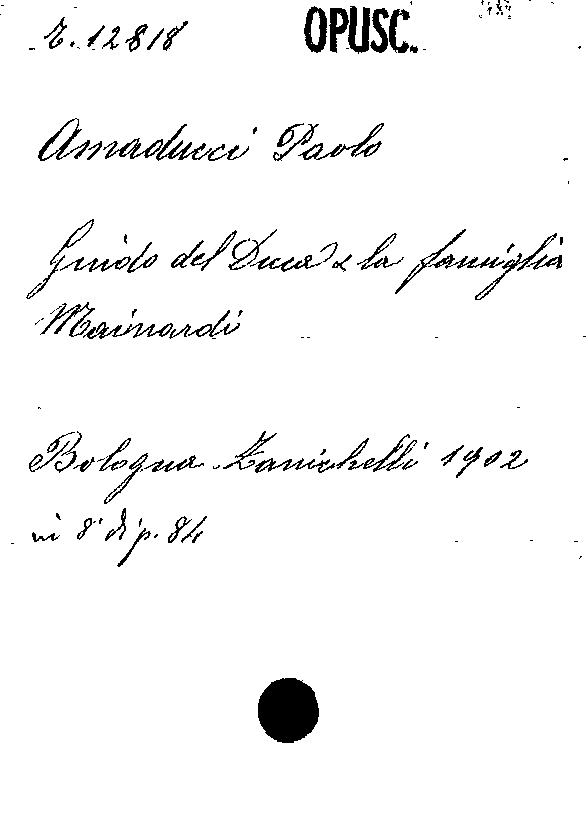 r. 12818 OPUSC.
Amaducci Paolo
Guido del Duca e la famiglia
Mainardi
Bologna Zanichelli 1902
in 8° di p. 84